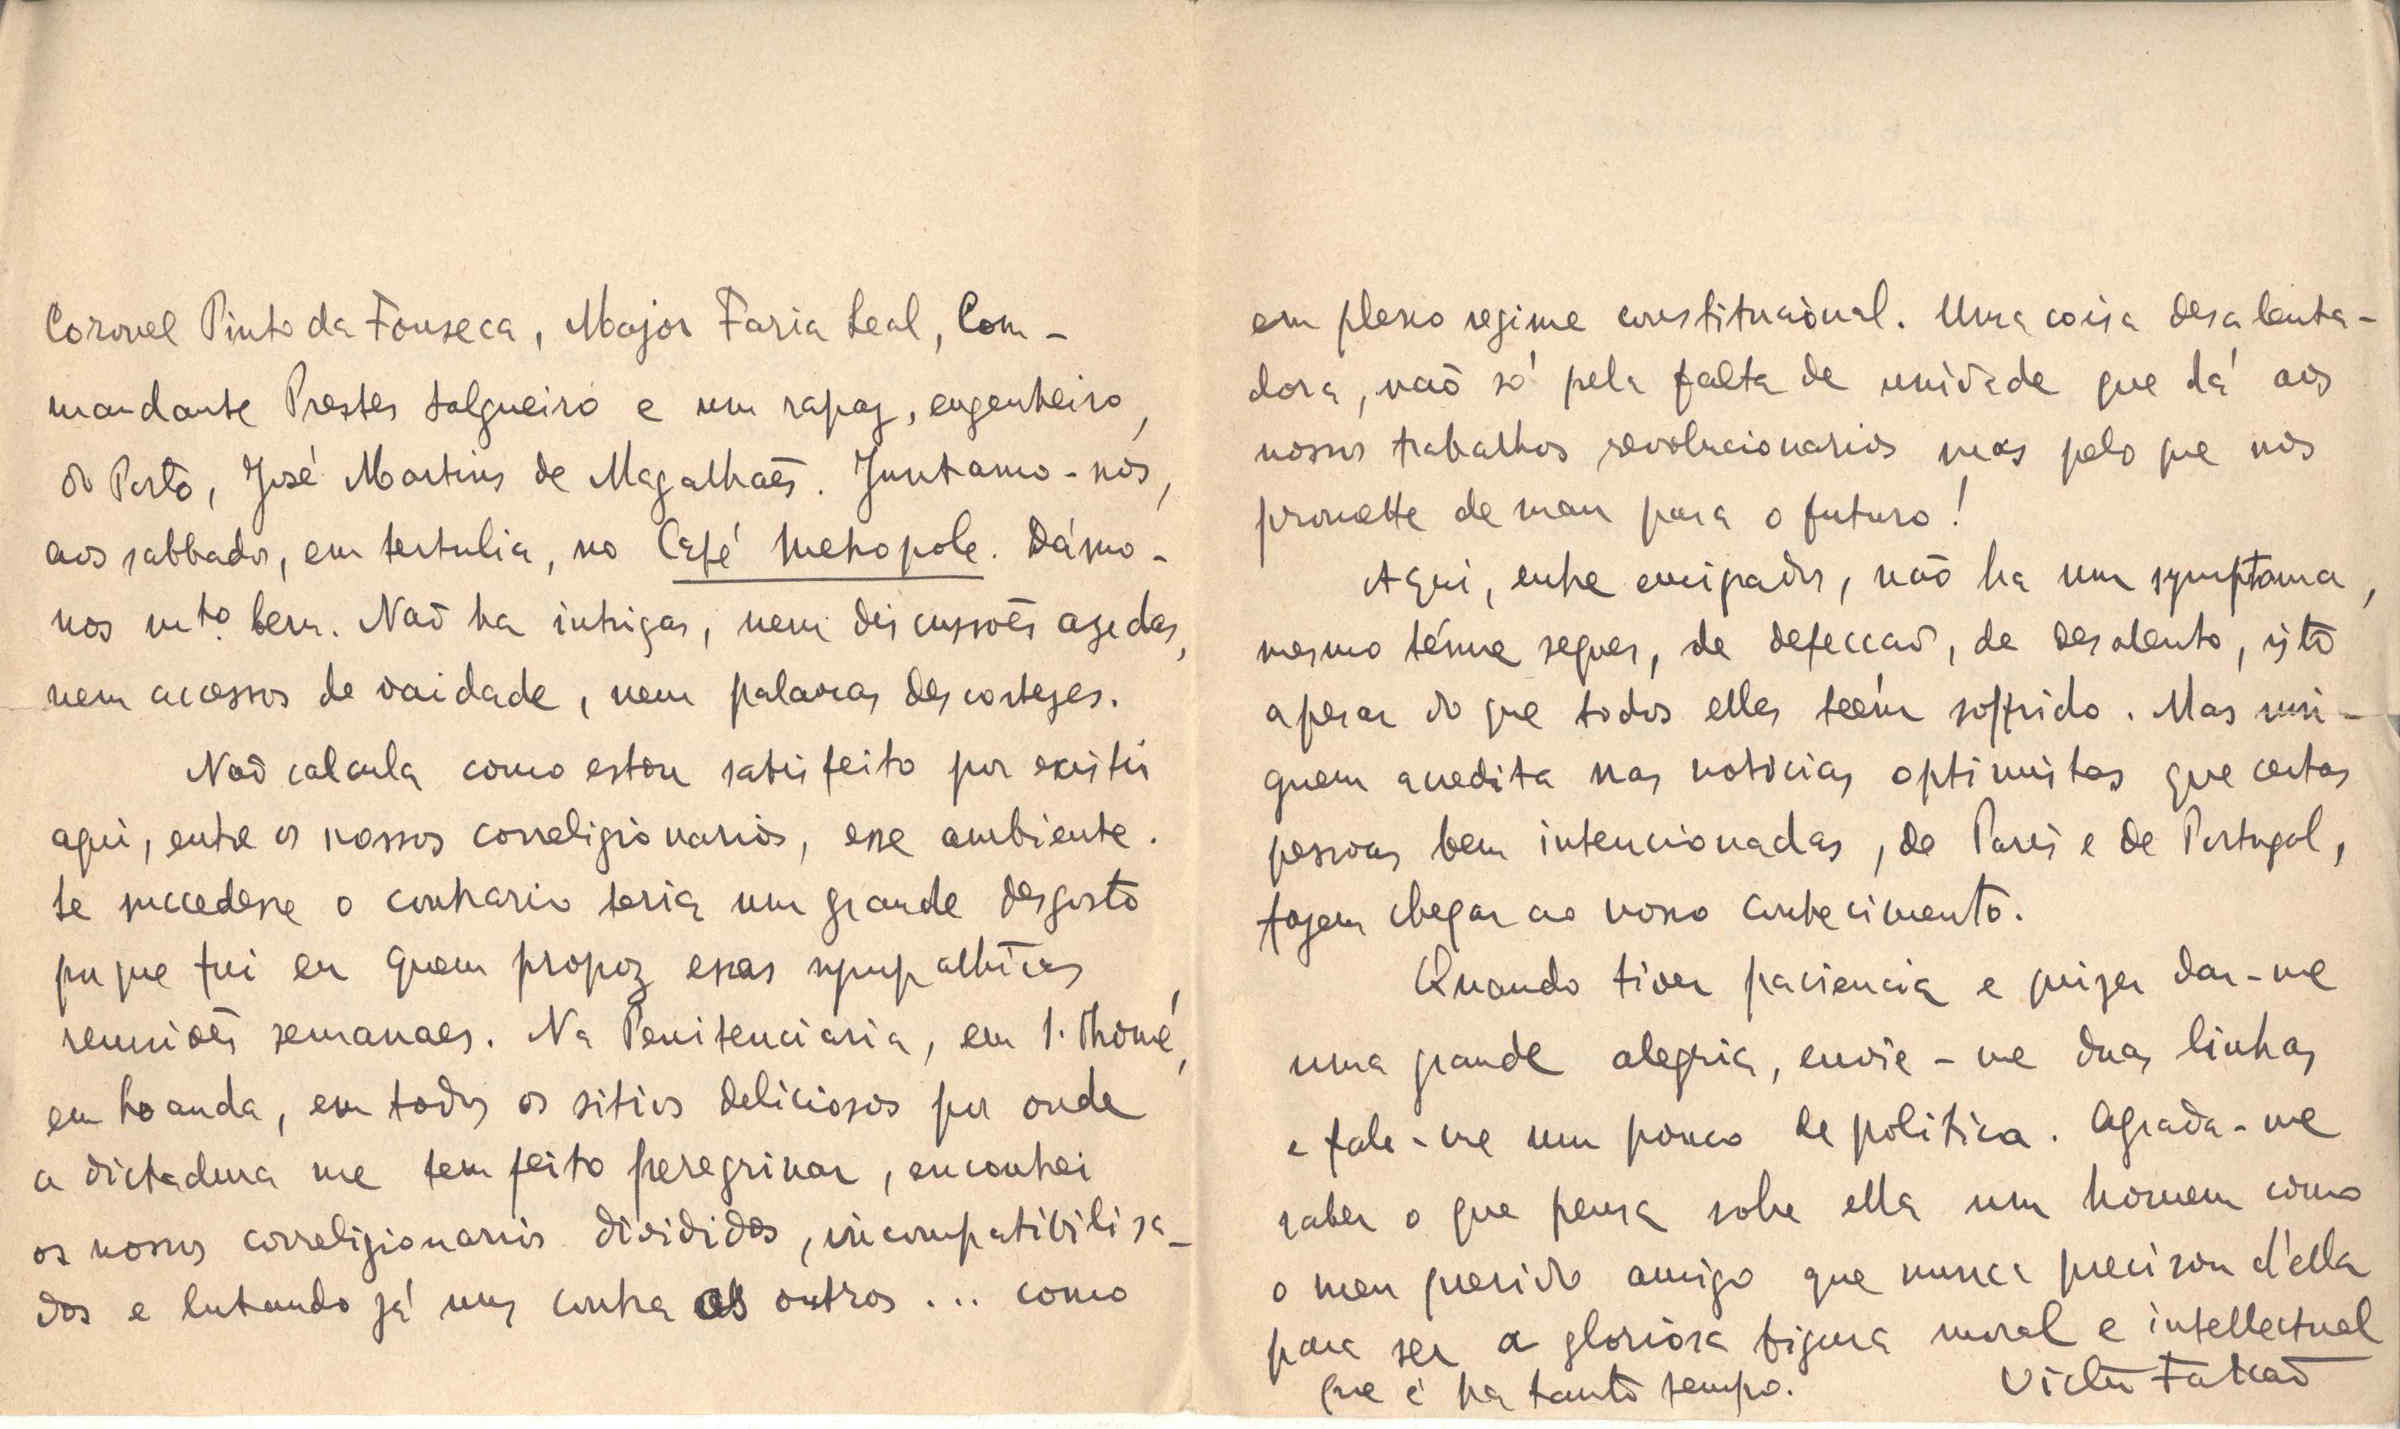 Coronel Pinto da Fonseca, Major Faria Leal, Com-
mandante Prestes Salgueiro e um rapaz, engenheiro,
do Porto, José Martins de Magalhaẽs. Juntamo-nos,
aos sabbados, em tertulia, no Café Metropole. Dámo-
nos mto. bem. Naõ ha intrigas, nem discussoẽs azedas,
nem accessos de vaidade, nem palavras descortezes.
Naõ calcula como estou satisfeito por existir
aqui, entre os nossos correligionarios, esse ambiente.
Se succedesse o contrario teria um grande desgosto
porque fui eu quem propoz essas sympathicas
reunioẽs semanaes. Na Penitenciaria, em S. Thomé,
em Loanda, em todos os sitios deliciosos por onde
a dictadura me tem feito peregrinar, encontrei
os nossos correligionarios divididos, incompatibilisa-
dos e lutando já uns contra os outros... como
em pleno regime constitucional. Uma coisa desalenta-
dora, naõ só pela falta de unidade que dá aos
nossos trabalhos revolucionarios mas pelo que nos
promette de mau para o futuro!
Aqui, entre emigrados, naõ ha um symptoma,
mesmo ténue sequer, de defecçaõ, de desalento, isto
apesar do que todos elles teém soffrido. Mas nin-
guem acredita nas noticias optimistas que certas
pessoas bem intencionadas, de Paris e de Portugal,
fazem chegar ao nosso conhecimento.
Quando tiver paciencia e quizer dar-me
uma grande alegria, envie-me duas linhas
e fale-me um pouco de politica. Agrada-me
saber o que pensa sobre ella um homem como
o meu querido amigo que nunca precisou d'ella
para ser a gloriosa figura moral e intellectual
que é ha tanto tempo. Victor Falcaõ